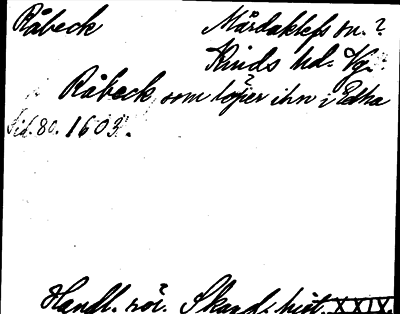 Råbeck Mårdaklefs sn. ?
Kinds hd. Vg.
Råbeck som löper ihn i Edha
Sid. 80. 1603.
Handl. rör. Skand. hist. XXIX.